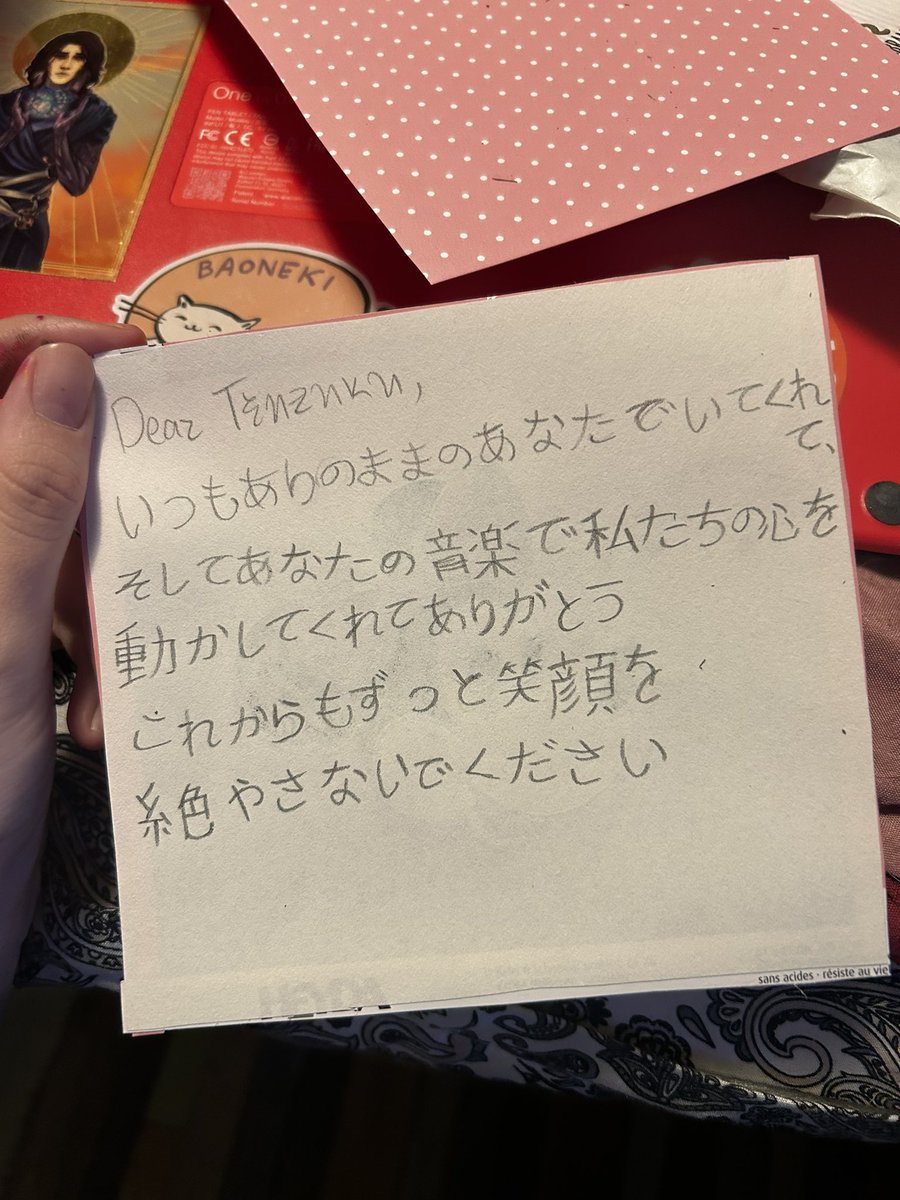 One
FC CE
BAONEKI
Dear Tenzuku,
いつもありのままのあなたでいてくれ
て、
そしてあなたの音楽で私たちの心を
動かしてくれてありがとう
これからもずっと笑顔を
絶やさないでください
sans acides · résiste au vie